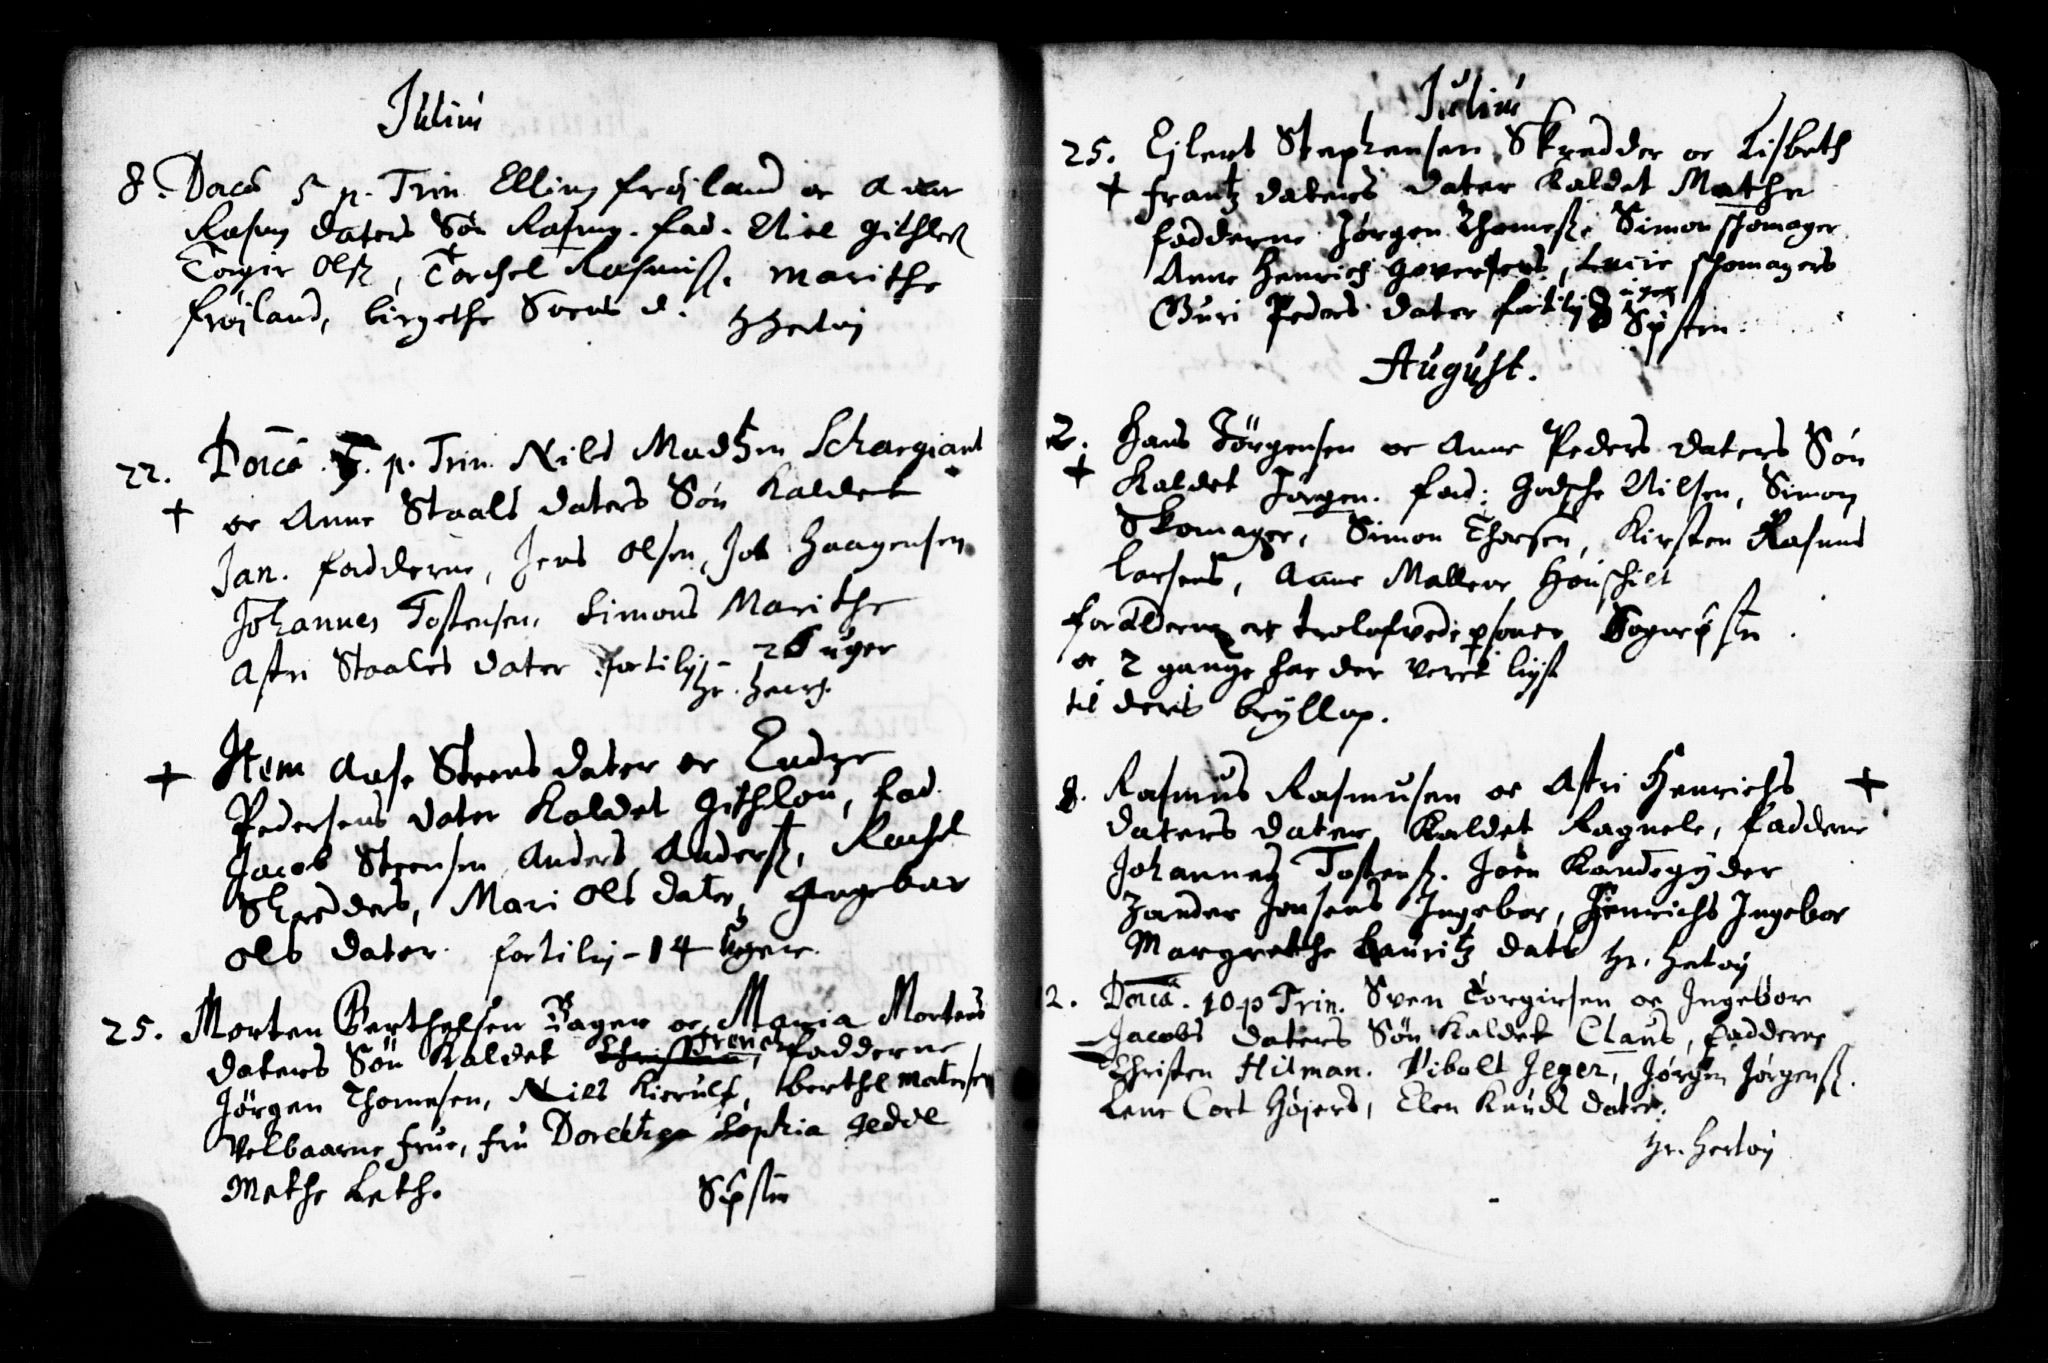 Julius
8. Dom̄ca 5 p. Trin. Elling frøjland oc
Rasm9 daters Søn Rasm9. fad. Eliel githleß
Torgir Olß, Torchel Rasmusß. Marithe
frøjland, birgethe Svens d. H Hertvj
22. Dom̄ca 7. p. Trin. Nils Madtzen Schargiant
+ oc Anne Staals daters Søn kaldet
Jan. fadderne, Jens Olsen, Job Haagensen
Johannes Tostensen, Simons Marithe
Astri Staales dater fortilig - 26 uger
Hr. Henrj.
+ Item Aase Steens dater oc Endre
Pedersens dater kaldet githlou, fad.
Jacob Steensen Anders Anderß, Rachel
Skredders, Mari Ols dater, Ingebor
Ols dater. fortilig - 14 Ugere.
25. Morten Berthelsen Bager oc Maria Mortens
daters Søn kaldet fadderne
Jørgen Thomesen, Nils Kierulf, berthel Matersen
Velbaarne frue, fru Dorethea Sophia Gedde
Methe Leth.
Sþster
Julius
25. Ejlert Stephensen Skredder oc Lisbeth
+ frantz daters dater kaldet Mathe
fadderne Jørgen Thomeß. Simon skomager
Anne Henrich goversens, Lucie skomagers
Guri Peders dater fortilig 8 uger
Sþster.
August.
2. Hans Jørgensen oc Anne Peders daters Søn
+ kaldet Jørgen. fad: Godsche Nilsen, Simon
Skomager, Simon Thorsen, Kirsten Rasmus
Larsens, Anne Malleve Houschilt
forælderne ere trolofvede psoner Sognepster.
oc 2 gange har der veret liust
til deris brÿllop.
8. Rasmus Rasmusen oc Astri Henrichs +
daters dater kaldet Ragnele, faddere
Johannes Tostenß. Joen Kandegyder
Zander Jensens Ingebor, Henrichs Ingebor
Margrethe Lauritz dats Hr. Hertvj
2. Dom̄ca. 10 p Trin. Sven Torgirsen oc Ingebor
Jacobs daters Søn kaldet Claus, fadderne
Christen Hitman. Vibolt Jeger, Jørgen Jørgenß.
Lene Cort Højers, Elen Knuds dater.
Hr. Hertvj